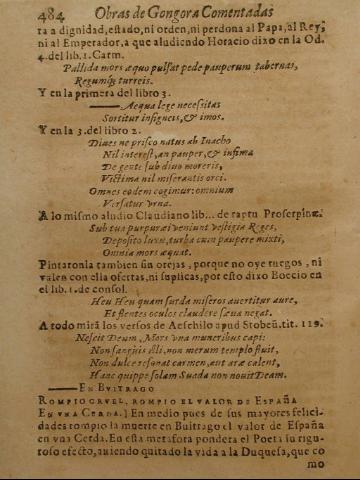 484 Obras de Gongora Comentadas
ra a dignidad, estado, ni orden, ni perdona al Papa, al Rey,
ni al Emperador, a que aludiendo Horacio dixo en la Od.
4. del lib. 1. Carm.
Pallida mors æquo pulsat pede pauperum tabernas,
Regumq; turreis.
Y en la primera del libro 3.
Aequa lege necessitas
Sortitur insigneis, & imos.
Y en la 3. del libro 2.
Diues ne prisco natus ab Inacho
Nil interest, an pauper, & infima
De gente sub diuo moreris,
Victima nil miserantis orci.
Omnes eodem cogimur: omnium
Versatur vrna.
A lo mismo aludio Claudiano lib... de raptu Proserpinæ.
Sub tua purpurei veniunt vestigia Reges,
Deposito luxu, turba cum paupere mixti,
Omnia mors æquat.
Pintaronla tambien sin orejas, porque no oye ruegos, ni
valen con ella ofertas, ni suplicas, por esto dixo Boecio en
el lib. 1. de consol.
Heu Heu quam surda miseros auertitur aure,
Et flentes oculos claudere sæua negat.
A todo mirã los versos de Aeschilo apud Stobeũ. tit. 119.
Nescit Deum, Mors vna muneribus capi:
Non sanguis illi, non merum templo fluit,
Non dulce resonat carmen, aut aræ calent,
Hanc quippe solam Suada non nouit Deam.
EN BUITRAGO
ROMPIO CRVEL, ROMPIO EL VALOR DE ESPAÑA
EN VNA CERDA.] En medio pues de sus mayores felici-
dades rompio la muerte en Buitrago el valor de España
en vna Cerda. En esta metafora pondera el Poeta su rigu-
roso efecto, auiendo quitado la vida a la Duquesa, que co
mo